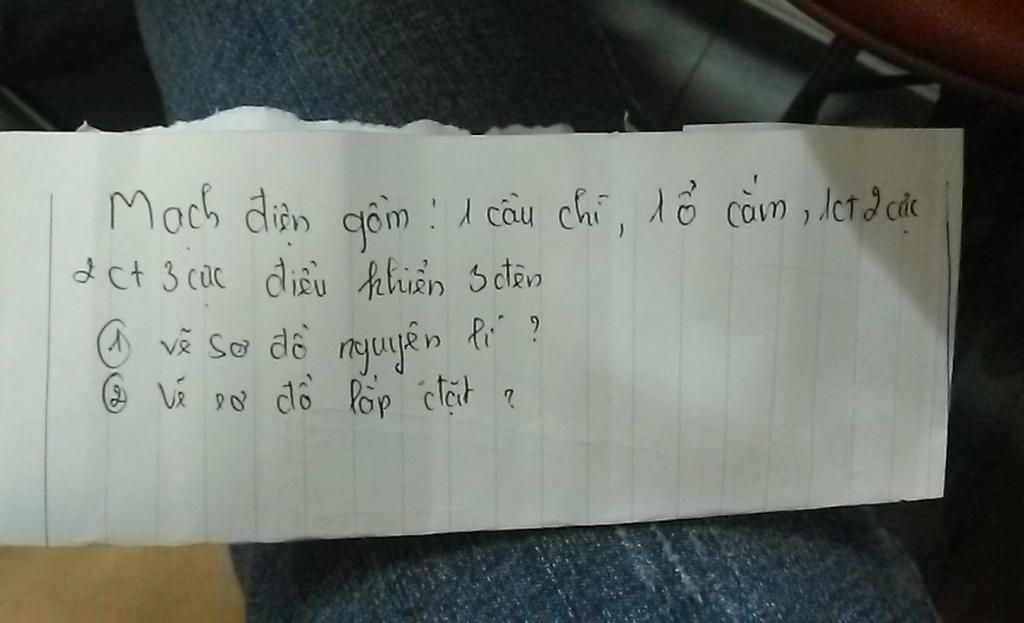 Mạch điện gồm: 1 cầu chì, 1 ổ cắm, 1ct 2 cực
2 ct 3 cực điều khiển 3 đèn
① vẽ sơ đồ nguyên lí ?
② Vẽ sơ đồ lắp đặt ?